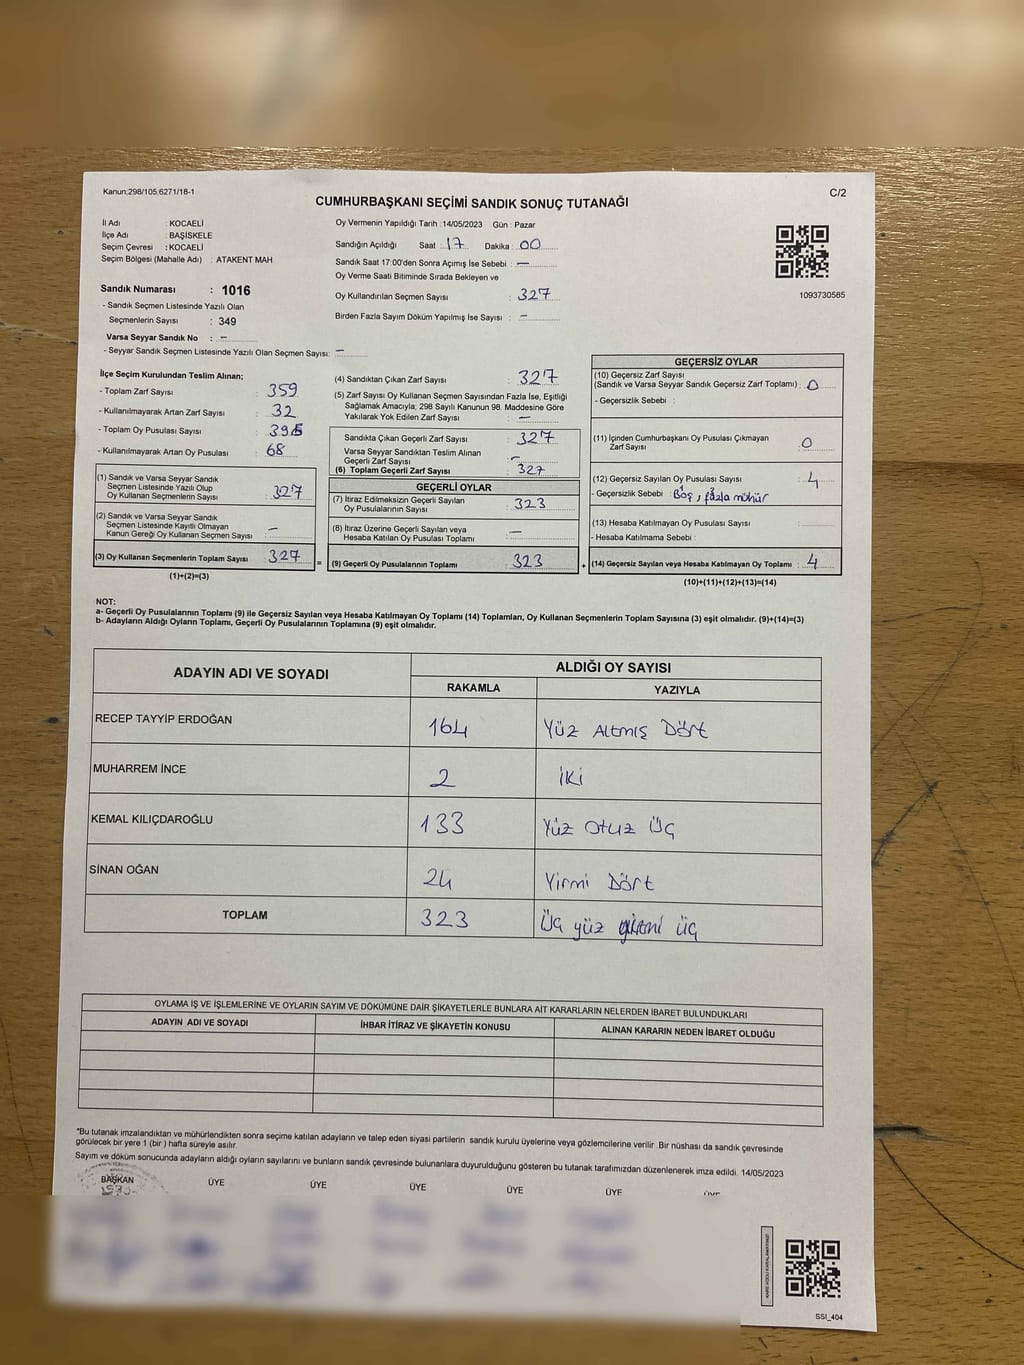 Kanun;298/105;6271/18-1
C/2
CUMHURBAŞKANI SEÇİMİ SANDIK SONUÇ TUTANAĞI
İl Adı : KOCAELİ
İlçe Adı : BAŞİSKELE
Seçim Çevresi : KOCAELİ
Seçim Bölgesi (Mahalle Adı) : ATAKENT MAH
Sandık Numarası : 1016
- Sandık Seçmen Listesinde Yazılı Olan
Seçmenlerin Sayısı : 349
Varsa Seyyar Sandık No : -
- Seyyar Sandık Seçmen Listesinde Yazılı Olan Seçmen Sayısı: -
Oy Vermenin Yapıldığı Tarih :14/05/2023 Gün : Pazar
Sandığın Açıldığı Saat : 17 Dakika : 00
Sandık Saat 17:00'den Sonra Açımış İse Sebebi : -
Oy Verme Saati Bitiminde Sırada Bekleyen ve
Oy Kullandırılan Seçmen Sayısı : 327
Birden Fazla Sayım Döküm Yapılmış İse Sayısı : -
1093730585
İlçe Seçim Kurulundan Teslim Alınan;
- Toplam Zarf Sayısı : 359
- Kullanılmayarak Artan Zarf Sayısı : 32
- Toplam Oy Pusulası Sayısı : 395
- Kullanılmayarak Artan Oy Pusulası : 68
(1) Sandık ve Varsa Seyyar Sandık
Seçmen Listesinde Yazılı Olup
Oy Kullanan Seçmenlerin Sayısı : 327
(2) Sandık ve Varsa Seyyar Sandık
Seçmen Listesinde Kayıtlı Olmayan
Kanun Gereği Oy Kullanan Seçmen Sayısı : -
(3) Oy Kullanan Seçmenlerin Toplam Sayısı : 327
(1)+(2)=(3)
=
(4) Sandıktan Çıkan Zarf Sayısı : 327
(5) Zarf Sayısı Oy Kullanan Seçmen Sayısından Fazla İse, Eşitliği
Sağlamak Amacıyla; 298 Sayılı Kanunun 98. Maddesine Göre
Yakılarak Yok Edilen Zarf Sayısı : -
Sandıkta Çıkan Geçerli Zarf Sayısı : 327
Varsa Seyyar Sandıktan Teslim Alınan
Geçerli Zarf Sayısı : -
(6) Toplam Geçerli Zarf Sayısı : 327
GEÇERLİ OYLAR
(7) İtiraz Edilmeksizin Geçerli Sayılan
Oy Pusulalarının Sayısı : 323
(8) İtiraz Üzerine Geçerli Sayılan veya
Hesaba Katılan Oy Pusulası Toplamı : -
(9) Geçerli Oy Pusulalarının Toplamı : 323
+
GEÇERSİZ OYLAR
(10) Geçersiz Zarf Sayısı
(Sandık ve Varsa Seyyar Sandık Geçersiz Zarf Toplamı) : 0
- Geçersizlik Sebebi :
(11) İçinden Cumhurbaşkanı Oy Pusulası Çıkmayan
Zarf Sayısı : 0
(12) Geçersiz Sayılan Oy Pusulası Sayısı : 4
- Geçersizlik Sebebi : Boş, fazla mühür
(13) Hesaba Katılmayan Oy Pusulası Sayısı :
- Hesaba Katılmama Sebebi :
(14) Geçersiz Sayılan veya Hesaba Katılmayan Oy Toplamı : 4
(10)+(11)+(12)+(13)=(14)
NOT:
a- Geçerli Oy Pusulalarının Toplamı (9) ile Geçersiz Sayılan veya Hesaba Katılmayan Oy Toplamı (14) Toplamları, Oy Kullanan Seçmenlerin Toplam Sayısına (3) eşit olmalıdır. (9)+(14)=(3)
b- Adayların Aldığı Oyların Toplamı, Geçerli Oy Pusulalarının Toplamına (9) eşit olmalıdır.
ADAYIN ADI VE SOYADI ALDIĞI OY SAYISI
RAKAMLA YAZIYLA
RECEP TAYYİP ERDOĞAN 164 Yüz Altmış Dört
MUHARREM İNCE 2 İki
KEMAL KILIÇDAROĞLU 133 Yüz Otuz Üç
SİNAN OĞAN 24 Yirmi Dört
TOPLAM 323 Üç yüz yirmi üç
OYLAMA İŞ VE İŞLEMLERİNE VE OYLARIN SAYIM VE DÖKÜMÜNE DAİR ŞİKAYETLERLE BUNLARA AİT KARARLARIN NELERDEN İBARET BULUNDUKLARI
ADAYIN ADI VE SOYADI İHBAR İTİRAZ VE ŞİKAYETİN KONUSU ALINAN KARARIN NEDEN İBARET OLDUĞU
*Bu tutanak imzalandıktan ve mühürlendikten sonra seçime katılan adayların ve talep eden siyasi partilerin sandık kurulu üyelerine veya gözlemcilerine verilir. Bir nüshası da sandık çevresinde
görülecek bir yere 1 (bir ) hafta süreyle asılır.
Sayım ve döküm sonucunda adayların aldığı oyların sayılarını ve bunların sandık çevresinde bulunanlara duyurulduğunu gösteren bu tutanak tarafımızdan düzenlenerek imza edildi. 14/05/2023
BAŞKAN ÜYE ÜYE ÜYE ÜYE ÜYE ÜYE
SSI_404